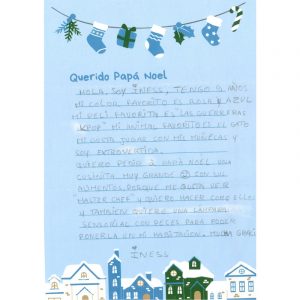 Querido Papá Noel
HOLA. SOY INESS, TENGO 9 AÑOS
MI COLOR FAVORITO ES ROSA Y AZUL
MI PELI FAVORITA ES LAS GUERRERAS
KPOP MI ANIMAL FAVORITO ES EL GATO
ME GUSTA JUGAR CON MIS MUÑECAS Y
SOY EXTROVERTIDA.
QUIERO PEDIR A PAPÁ NOEL UNA
COSINITA MUY GRANDE CON SUS
ALIMENTOS. PORQUE ME GUSTA VER
MASTER CHEF Y QUIERO HACER COMO ELLOS
Y TAMBIEN QUIERO UNA LAMPARA
SENSORIAL CON PECES PARA PODER
PONERLA EN MI HABITACIÓN. MUCHA GRACI
INESS